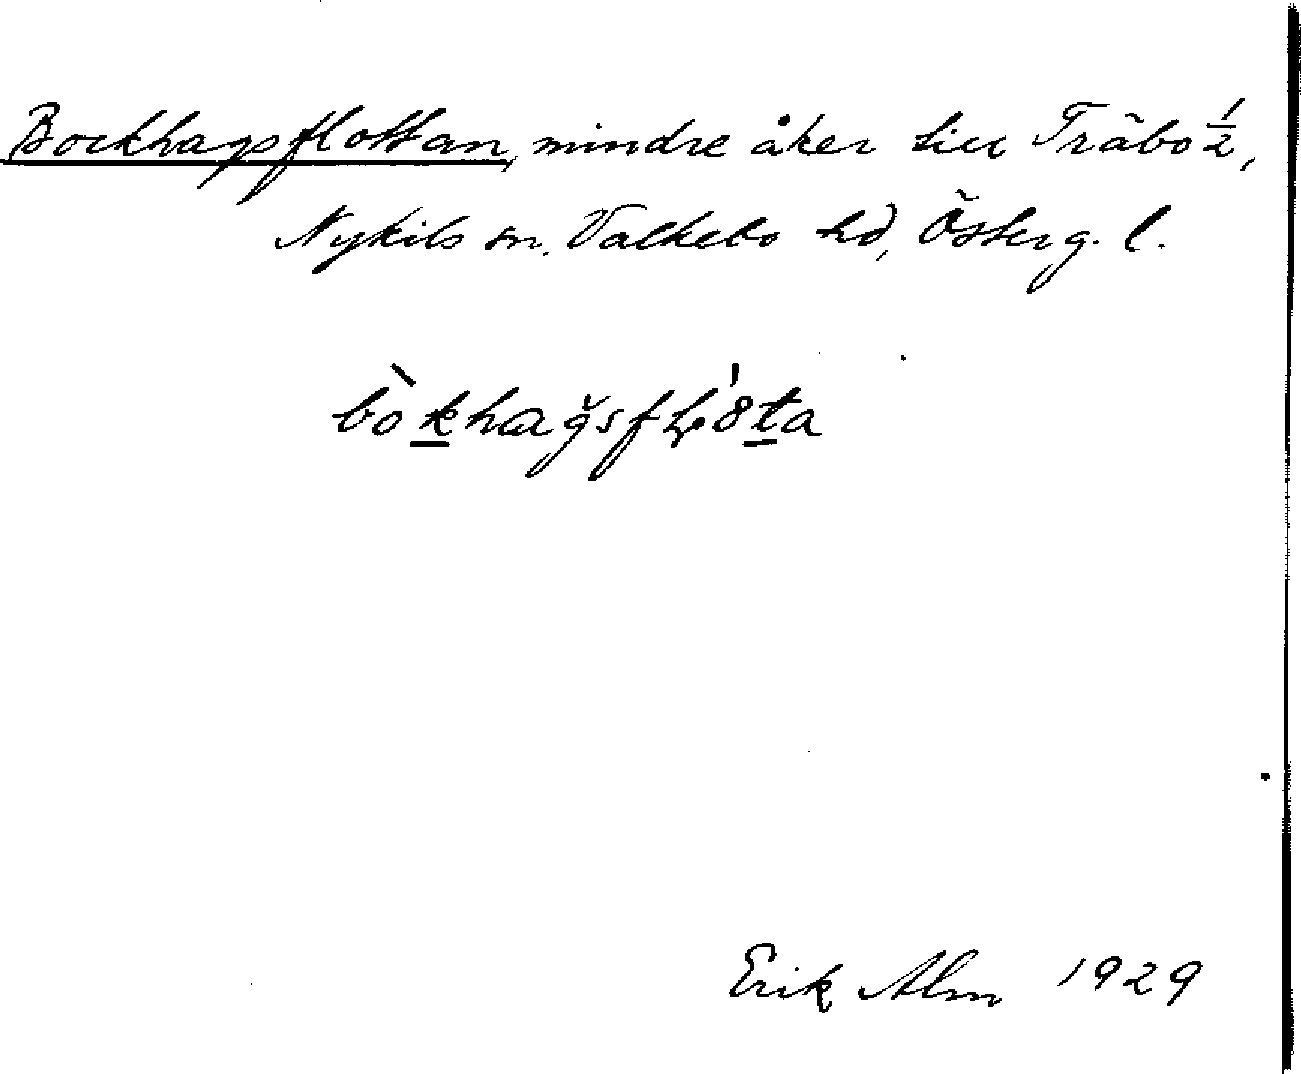 Bockhagsflottan, mindre åker till Träbo ½,
Nykils sn. Valkebo hd, Österg. l.
bòkhagsfl8ta
Erik Alm 1929